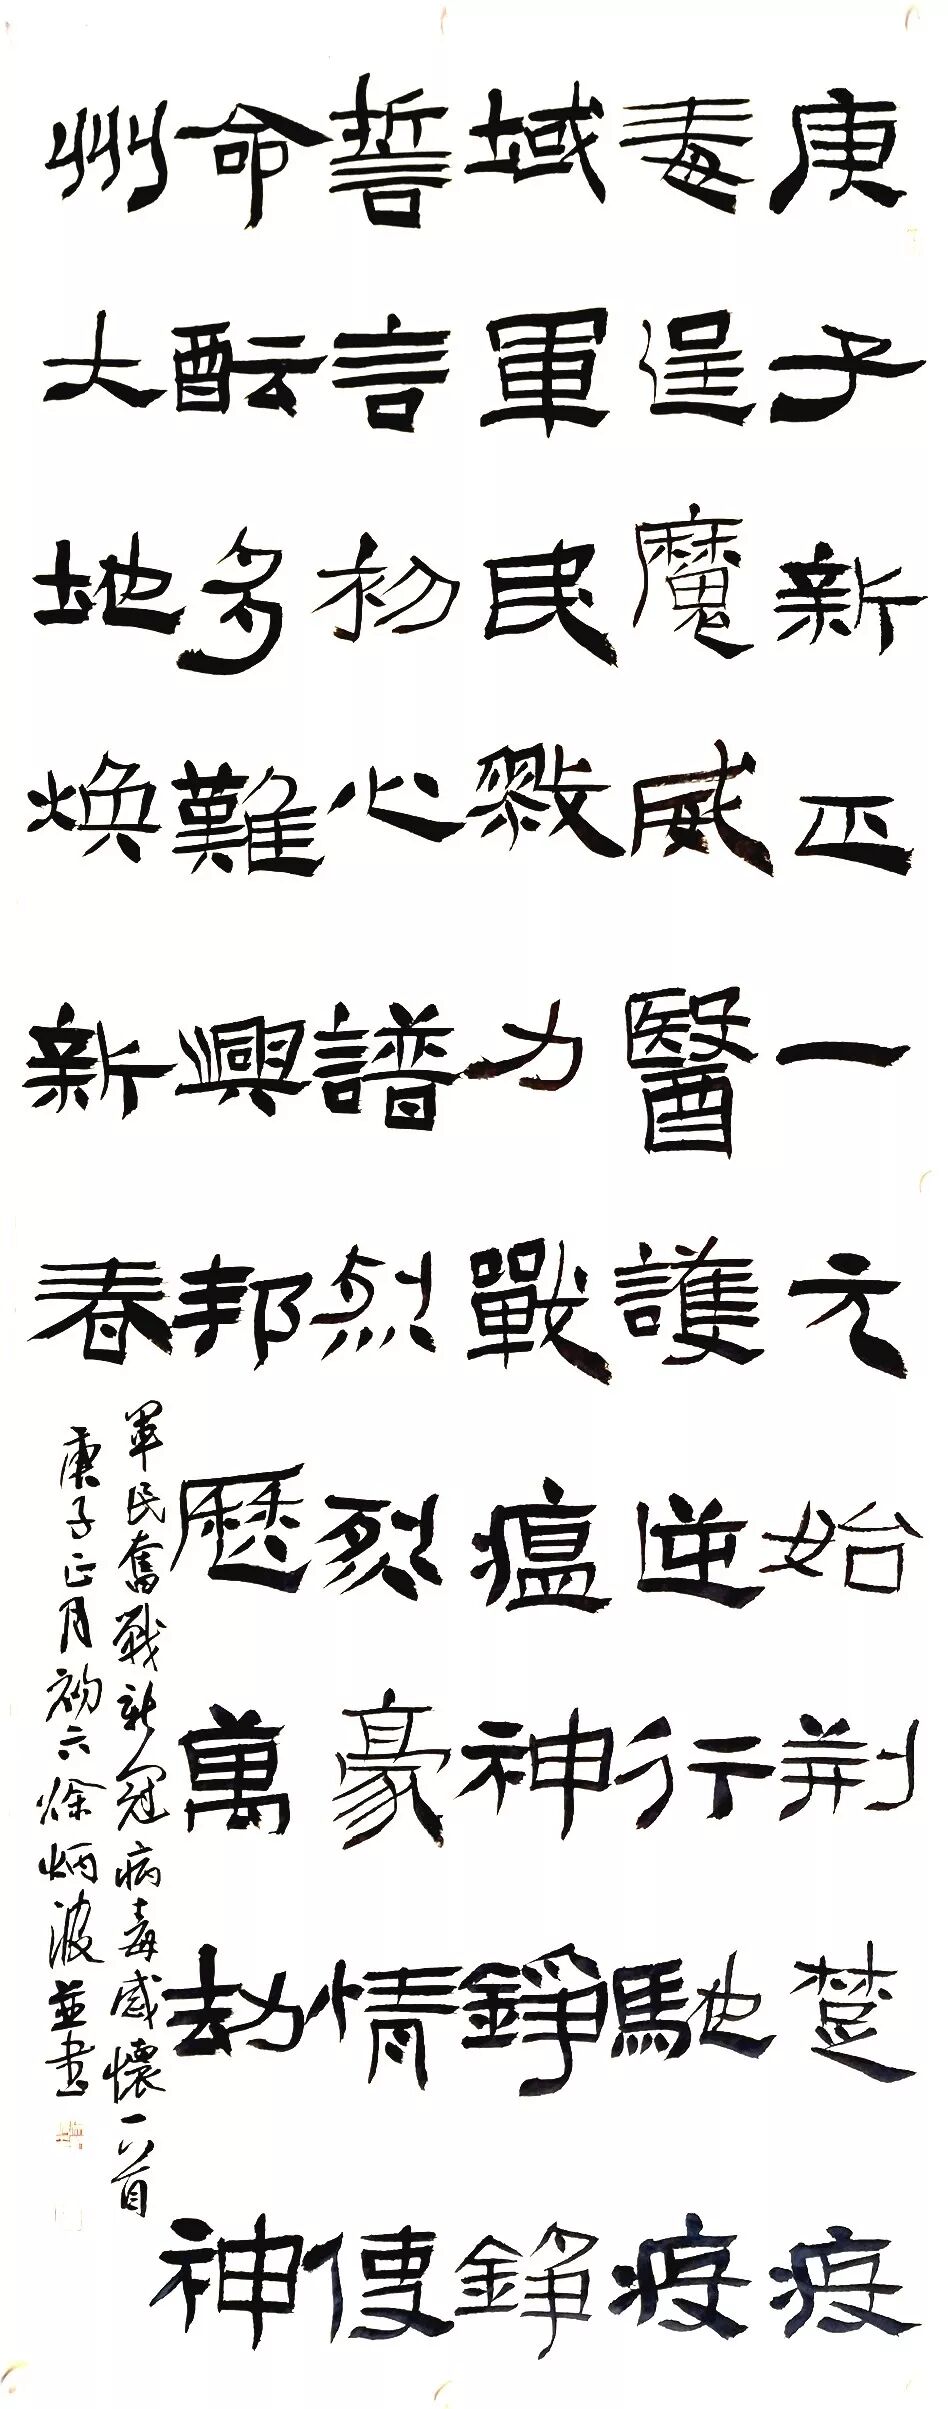 庚子新正一元始荆楚疫
毒逞魔威醫護逆行馳疫
域軍民戮力戰瘟神錚錚
誓言初心譜烈烈豪情傳
命酝多難興邦歷萬劫神
州大地焕新春
軍民奮戰新冠病毒感懷一首
庚子正月初六徐炳波並書